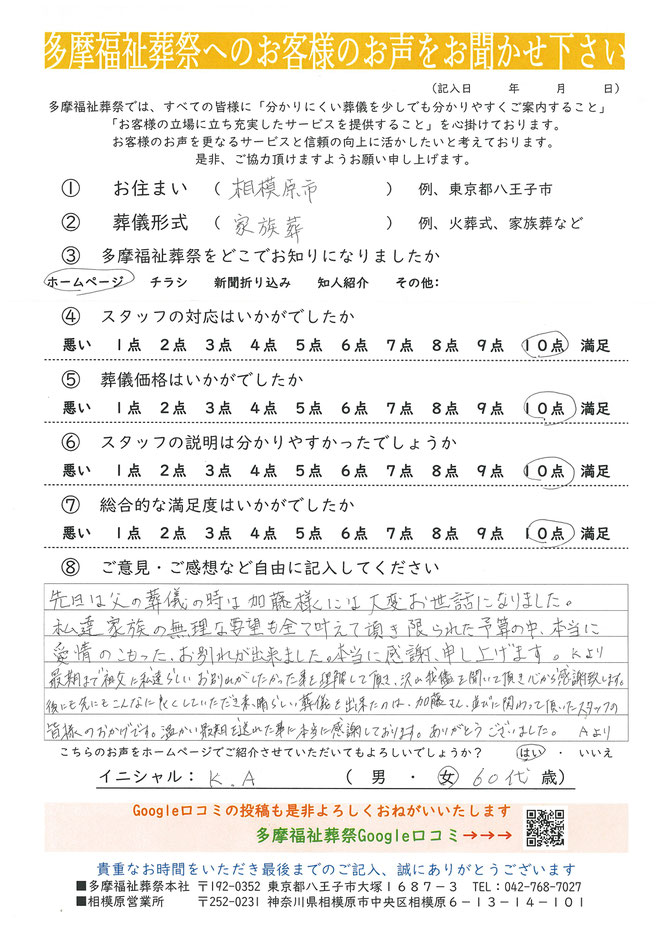 多摩福祉葬祭へのお客様のお声をお聞かせ下さい
（記入日　　年　　月　　日）
多摩福祉葬祭では、すべての皆様に「分かりにくい葬儀を少しでも分かりやすくご案内すること」
「お客様の立場に立ち充実したサービスを提供すること」を心掛けております。
お客様のお声を更なるサービスと信頼の向上に活かしたいと考えております。
是非、ご協力頂けますようお願い申し上げます。
① お住まい （ 相模原市 ） 例、東京都八王子市
② 葬儀形式 （ 家族葬 ） 例、火葬式、家族葬など
③ 多摩福祉葬祭をどこでお知りになりましたか
ホームページ　チラシ　新聞折り込み　知人紹介　その他:
④ スタッフの対応はいかがでしたか
悪い 1点 2点 3点 4点 5点 6点 7点 8点 9点 10点 満足
⑤ 葬儀価格はいかがでしたか
悪い 1点 2点 3点 4点 5点 6点 7点 8点 9点 10点 満足
⑥ スタッフの説明は分かりやすかったでしょうか
悪い 1点 2点 3点 4点 5点 6点 7点 8点 9点 10点 満足
⑦ 総合的な満足度はいかがでしたか
悪い 1点 2点 3点 4点 5点 6点 7点 8点 9点 10点 満足
⑧ ご意見・ご感想など自由に記入してください
先日は父の葬儀の時は加藤様には大変お世話になりました。
私達家族の無理な要望も全て叶えて頂き限られた予算の中、本当に
愛情のこもった、お別れが出来ました。本当に感謝、申し上げます。Kより
最期まで祖父に私達らしいお別れがしたかった事を理解して頂き、沢山我儘を聞いて頂き心から感謝致します。
後にも先にもこんなに良くしていただき素晴らしい葬儀を出来たのは、加藤さん、並びに関わって頂いたスタッフの
皆様のおかげです。温かい最期を送れた事に本当に感謝しております。ありがとうございました。 Aより
こちらのお声をホームページでご紹介させていただいてもよろしいでしょうか？ はい ・ いいえ
イニシャル： K.A （ 男 ・ 女 60代 歳）
Google口コミの投稿も是非よろしくおねがいいたします
多摩福祉葬祭Google口コミ→→→
貴重なお時間をいただき最後までのご記入、誠にありがとうございます
■多摩福祉葬祭本社 〒192-0352 東京都八王子市大塚１６８７－３ TEL：042-768-7027
■相模原営業所 〒252-0231 神奈川県相模原市中央区相模原６－１３－１４－１０１